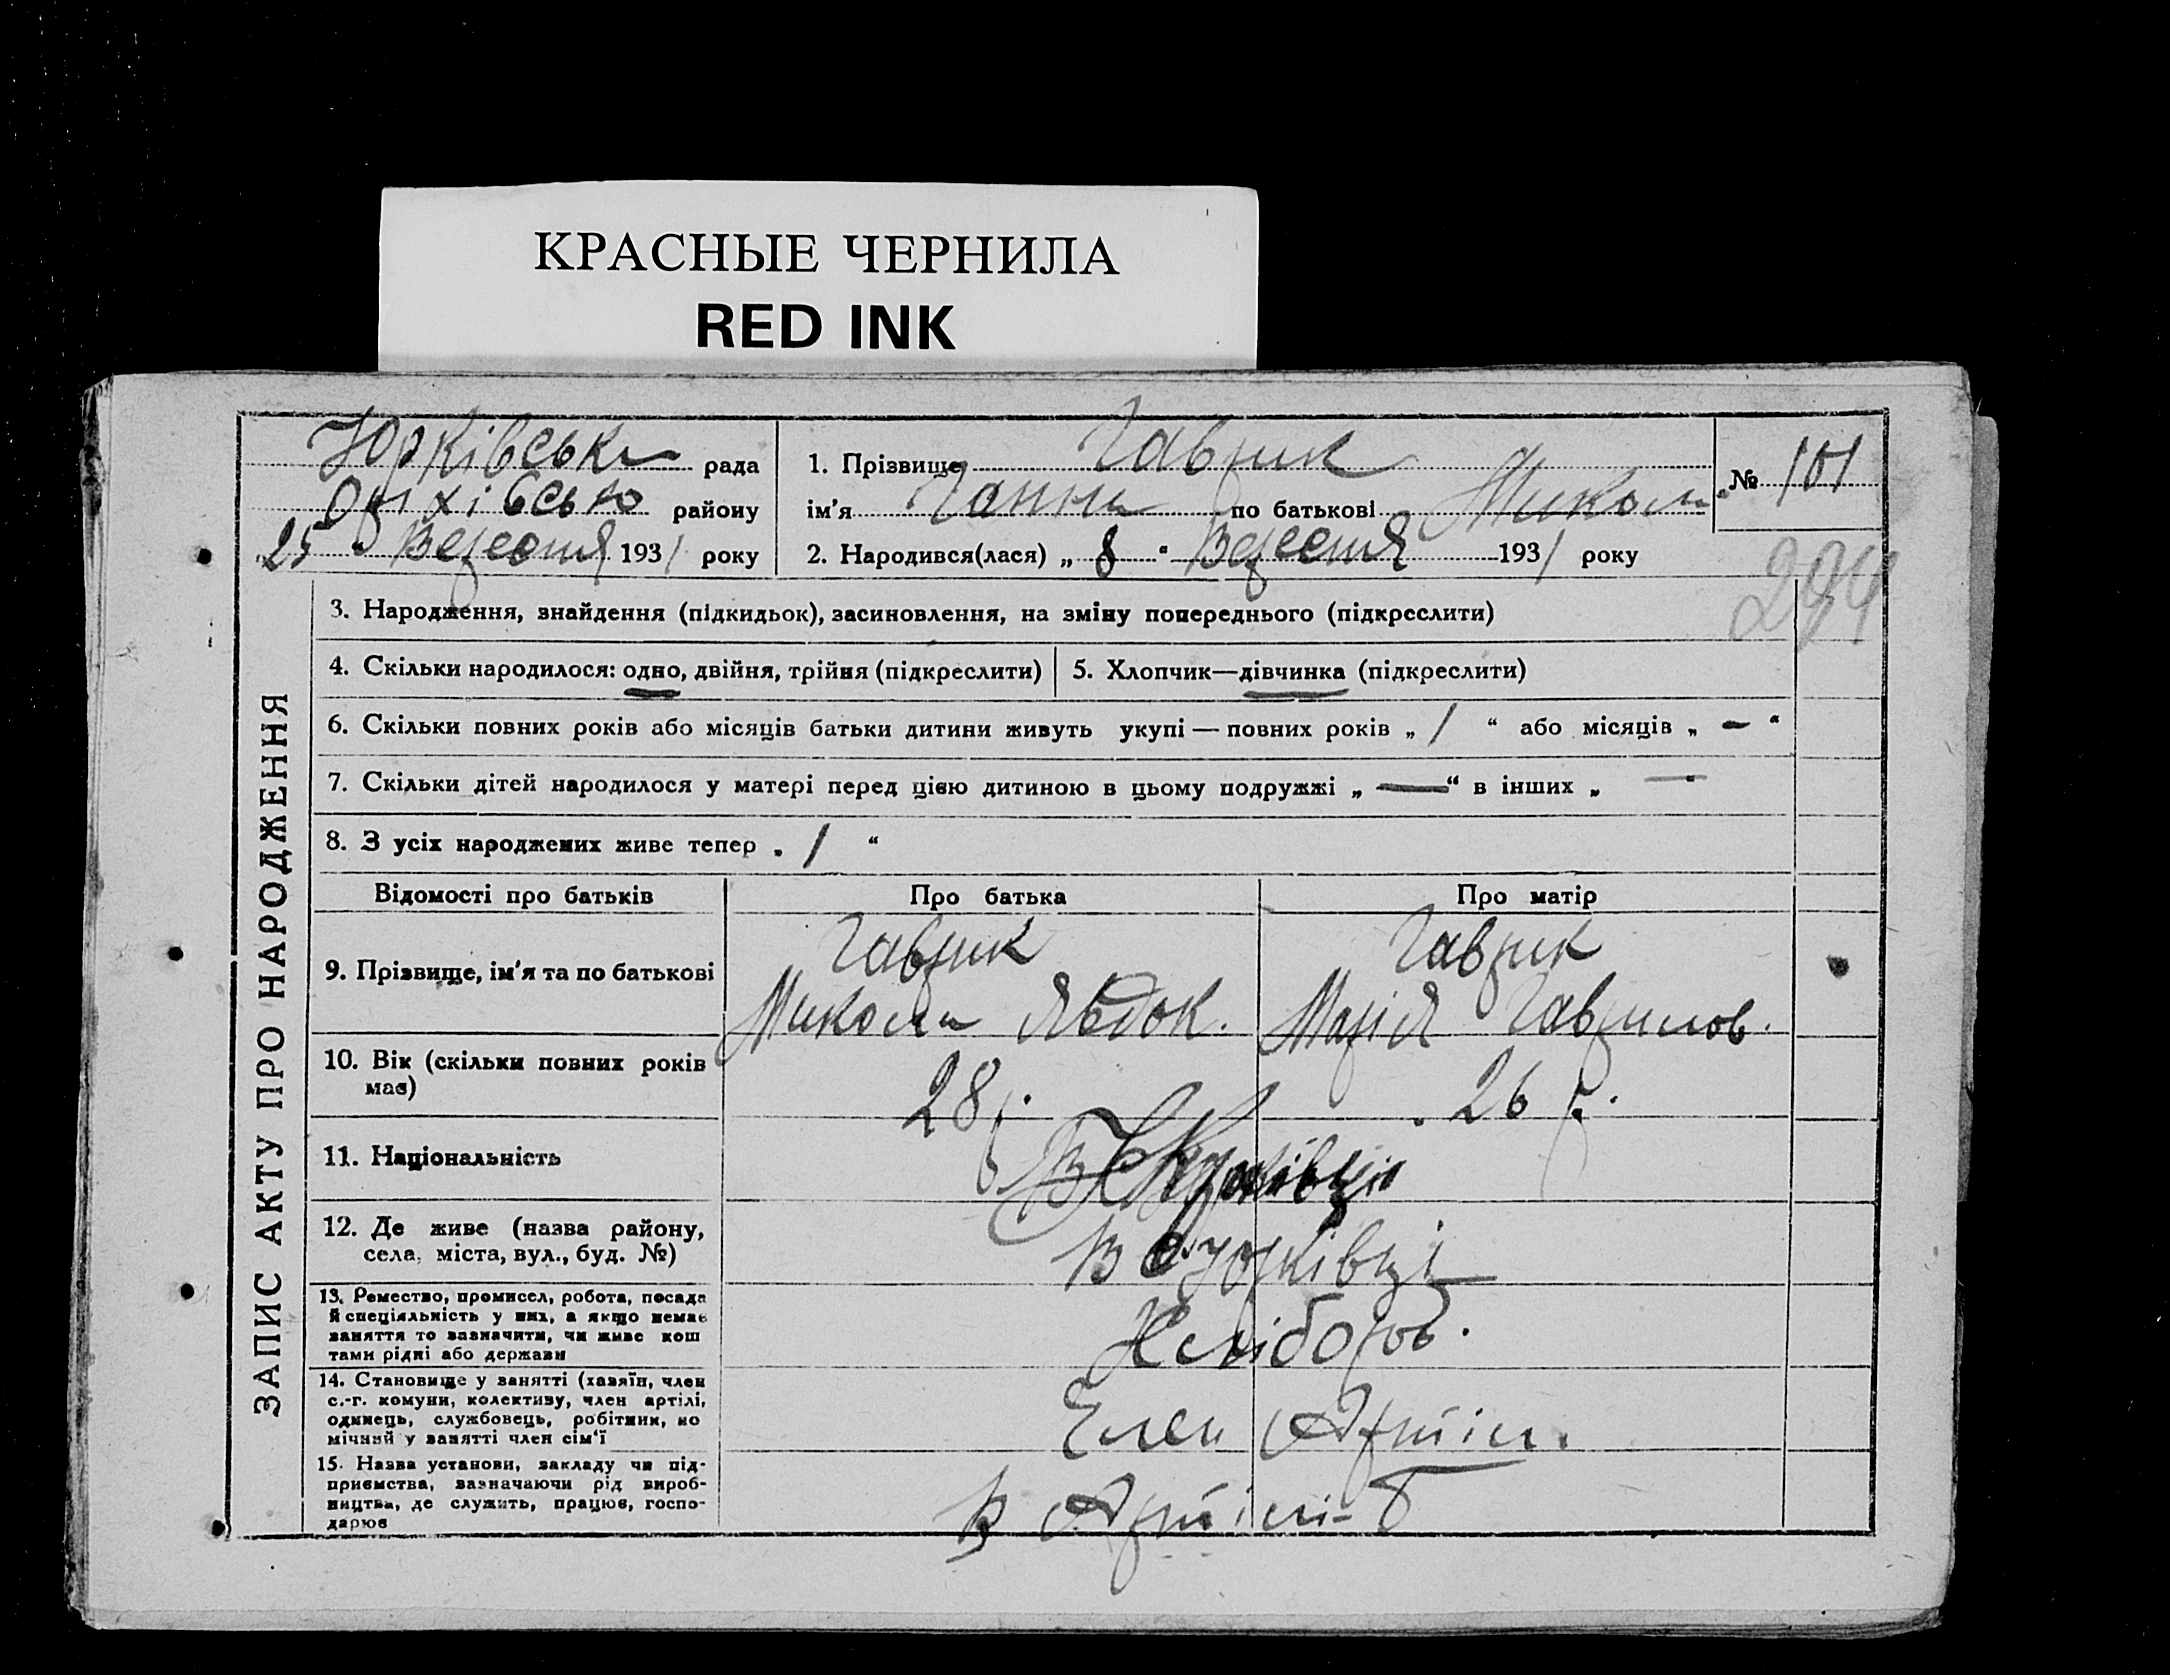 КРАСНЫЕ ЧЕРНИЛА
RED INK
Юрківська рада
Оріхівсько району
25 " Вересня 1931 року
1. Прізвище Гаврик
ім'я Ганна по батькові Микол.
2. Народився(лася) „ 8 " Вересня 1931 року
№ 101
294
ЗАПИС АКТУ ПРО НАРОДЖЕННЯ
3. Народження, знайдення (підкидьок), засиновлення, на зміну попереднього (підкреслити)
4. Скільки народилося: одно, двійня, трійня (підкреслити)
5. Хлопчик—дівчинка (підкреслити)
6. Скільки повних років або місяців батьки дитини живуть укупі — повних років „ 1 “ або місяців „ — “
7. Скільки дітей народилося у матері перед цією дитиною в цьому подружжі „ — “ в інших „ —
8. З усіх народжених живе тепер „ 1 “
Відомості про батьків Про батька Про матір
9. Прізвище, ім'я та по батькові
Гаврик
Микола Явдок.
Гаврик
Марія Гаврилов.
10. Вік (скільки повних років має)
28 р.
26 р.
11. Національність
12. Де живе (назва району,
села, міста, вул., буд. №)
В с. Юрківці
13. Ремество, промисел, робота, посада
й спеціяльність у них, а якщо немає
заняття то зазначити, чи живе кош
тами рідні або держави
Хлібороб.
14. Становище у занятті (хазяїн, член
с.-г. комуни, колективу, член артілі,
одинець, службовець, робітник, по
мічний у занятті член сім'ї
Член Артіл.
15. Назва установи, закладу чи під-
приємства, зазначаючи рід вироб-
ництва, де служить, працює, госпо-
дарює
В Артілі